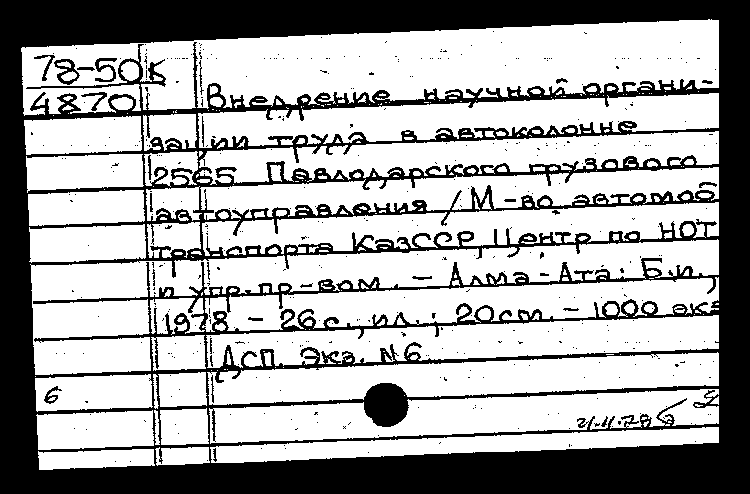 78-50к
4870
Внедрение научной органи-
зации труда в автоколонне
2565 Павлодарского грузового
автоуправления / М-во автомоб
транспорта КазССР, Центр по НОТ
и упр. пр-вом. - Алма-Ата: Б.и.,
1978. - 26 с., ил.; 20 см. - 1000 экз
ДСП. Экз. №6
6